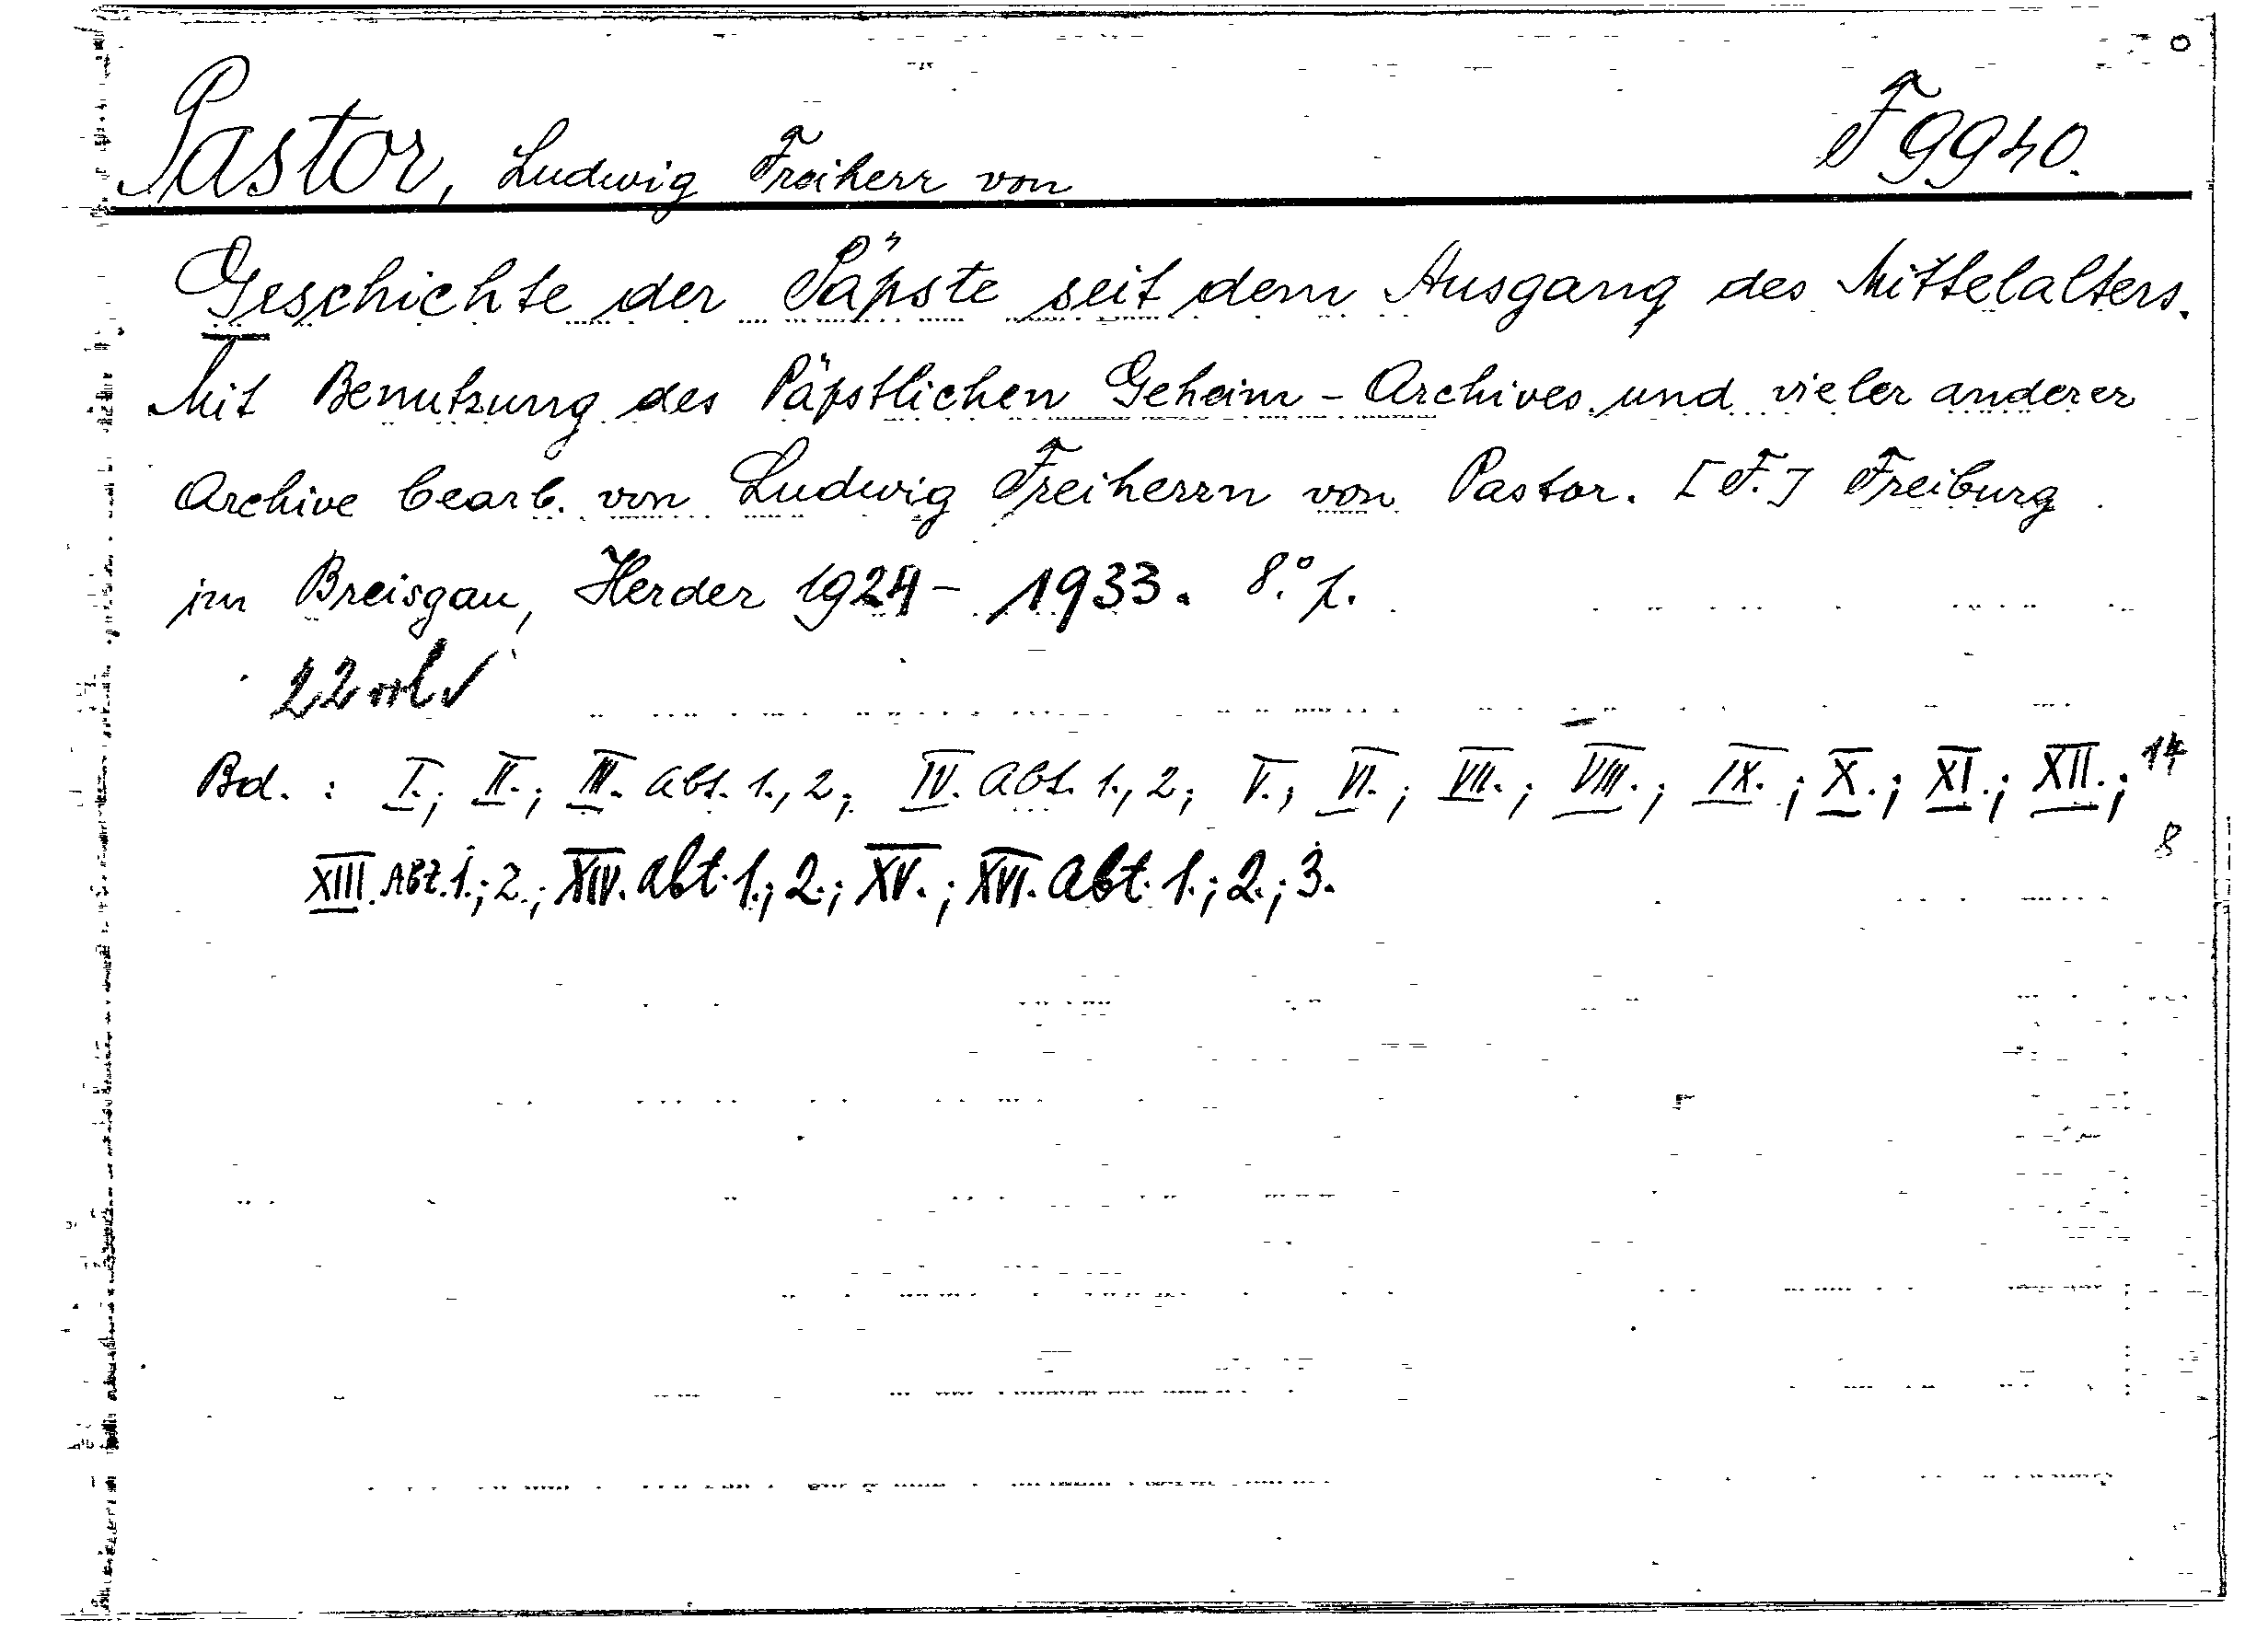 Pastor, Ludwig Freiherr von F 9940.
Geschichte der Päpste seit dem Ausgang des Mittelalters.
Mit Benutzung des Päpstlichen Geheim-Archives und vieler anderer
Archive bearb. von Ludwig Freiherrn von Pastor. [F.] Freiburg
im Breisgau, Herder 1924 - 1933. 8.°
22
Bd. : I.; II.; III. Abt. 1., 2; IV. Abt. 1., 2; V.; VI.; VII.; VIII.; IX.; X.; XI.; XII.; 14
8
XIII. Abt. 1.; 2.; XIV. Abt. 1.; 2.; XV.; XVI. Abt. 1.; 2.; 3.